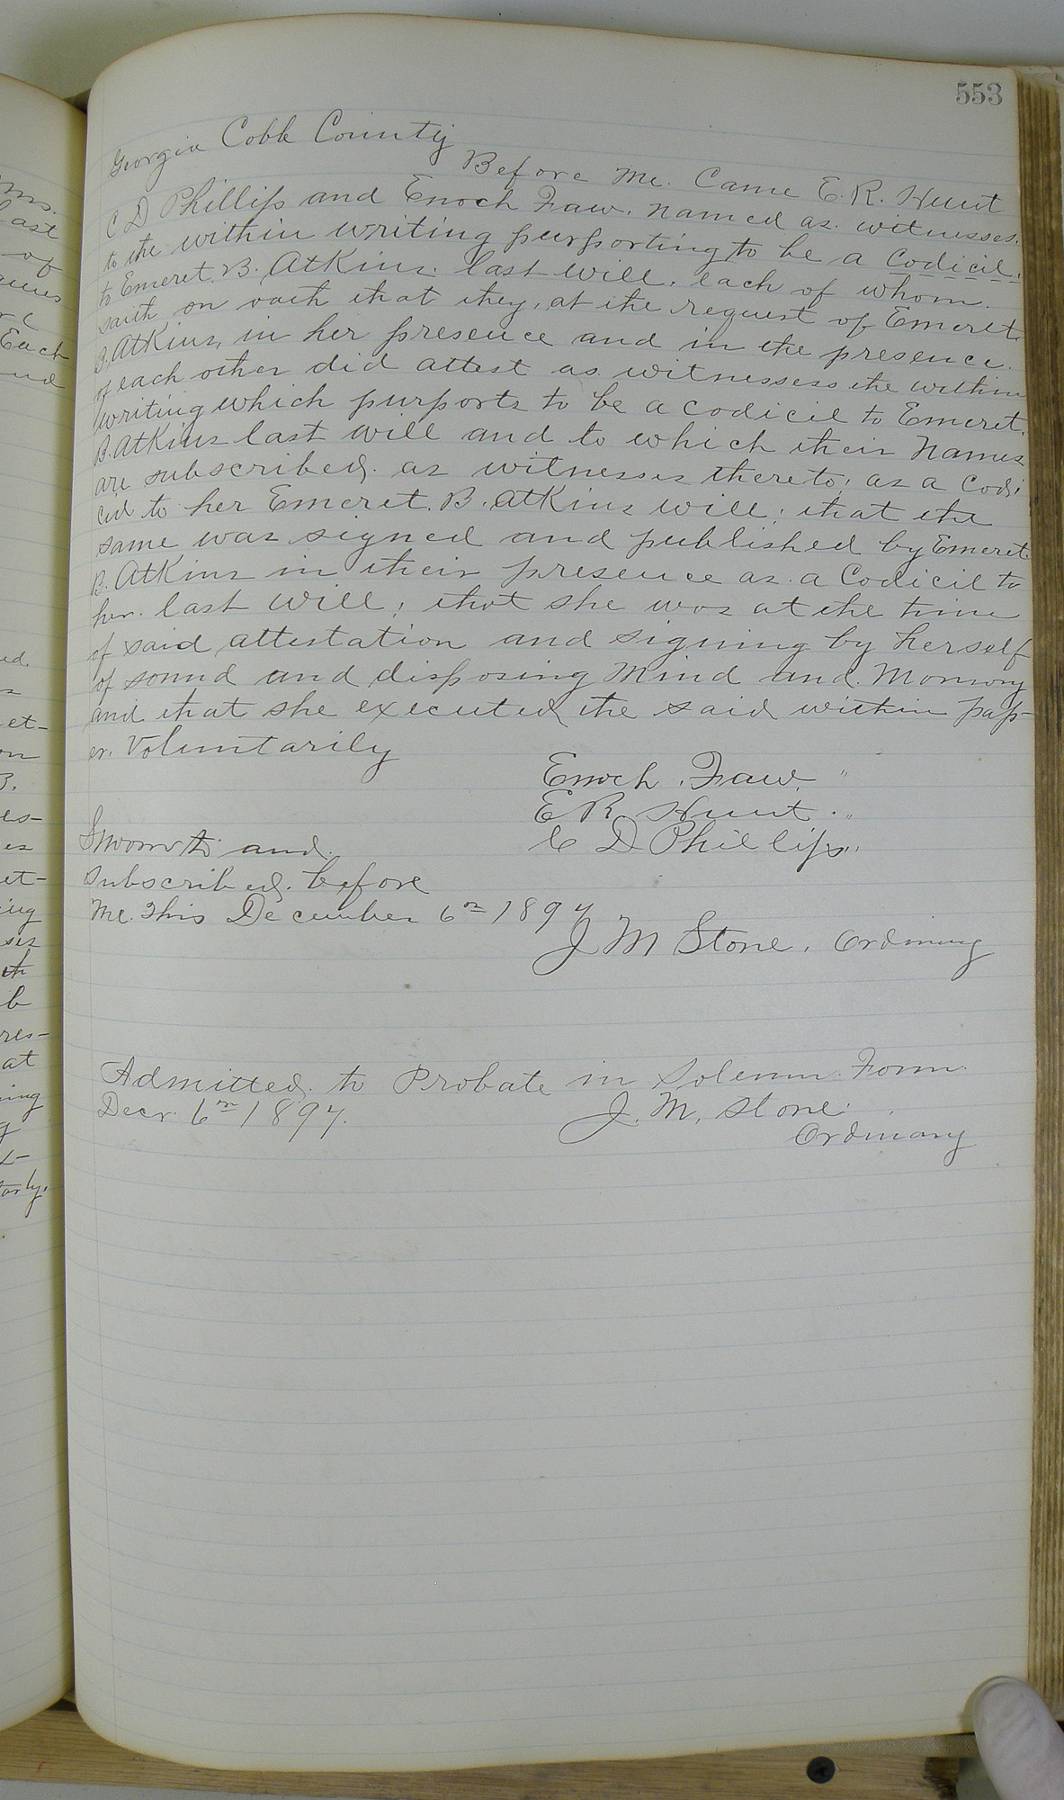 553
Georgia Cobb County
Before me. Came E. R. Hunt
C D Phillips and Enoch Faw. named as witnesses.
to the within writing purporting to be a Codicil.
to Emeret. B. Atkins. last will, each of whom.
saith on oath that they, at the request of Emeret.
B. Atkins, in her presence and in the presence.
of each other did attest as witnessess the within
writing which purports to be a codicil to Emeret.
B. Atkins last will and to which their names
are subscribed. as witnesses thereto; as a Codi
cil to her Emeret. B. Atkins will; that the
same was signed and published by Emeret.
B. Atkins in their presence as a Codicil to
her. last will; that she was at the time
of said attestation and signing by herself
of sound and disposing mind and. Memory
and that she executed the said within pap-
er. Voluntarily
Enoch. Faw. "
E R Hunt. "
C D Phillips. "
Sworn to and.
subscribed. before
me. This December 6th 1897
J M Stone. Ordinary
Admitted. to Probate in Solemn. Form.
Decr. 6th 1897.
J. M. Stone.
Ordinary
ms.
last
of
Each
ed.
et-
on
B.
es-
et-
ing
th
b
res-
at
ing